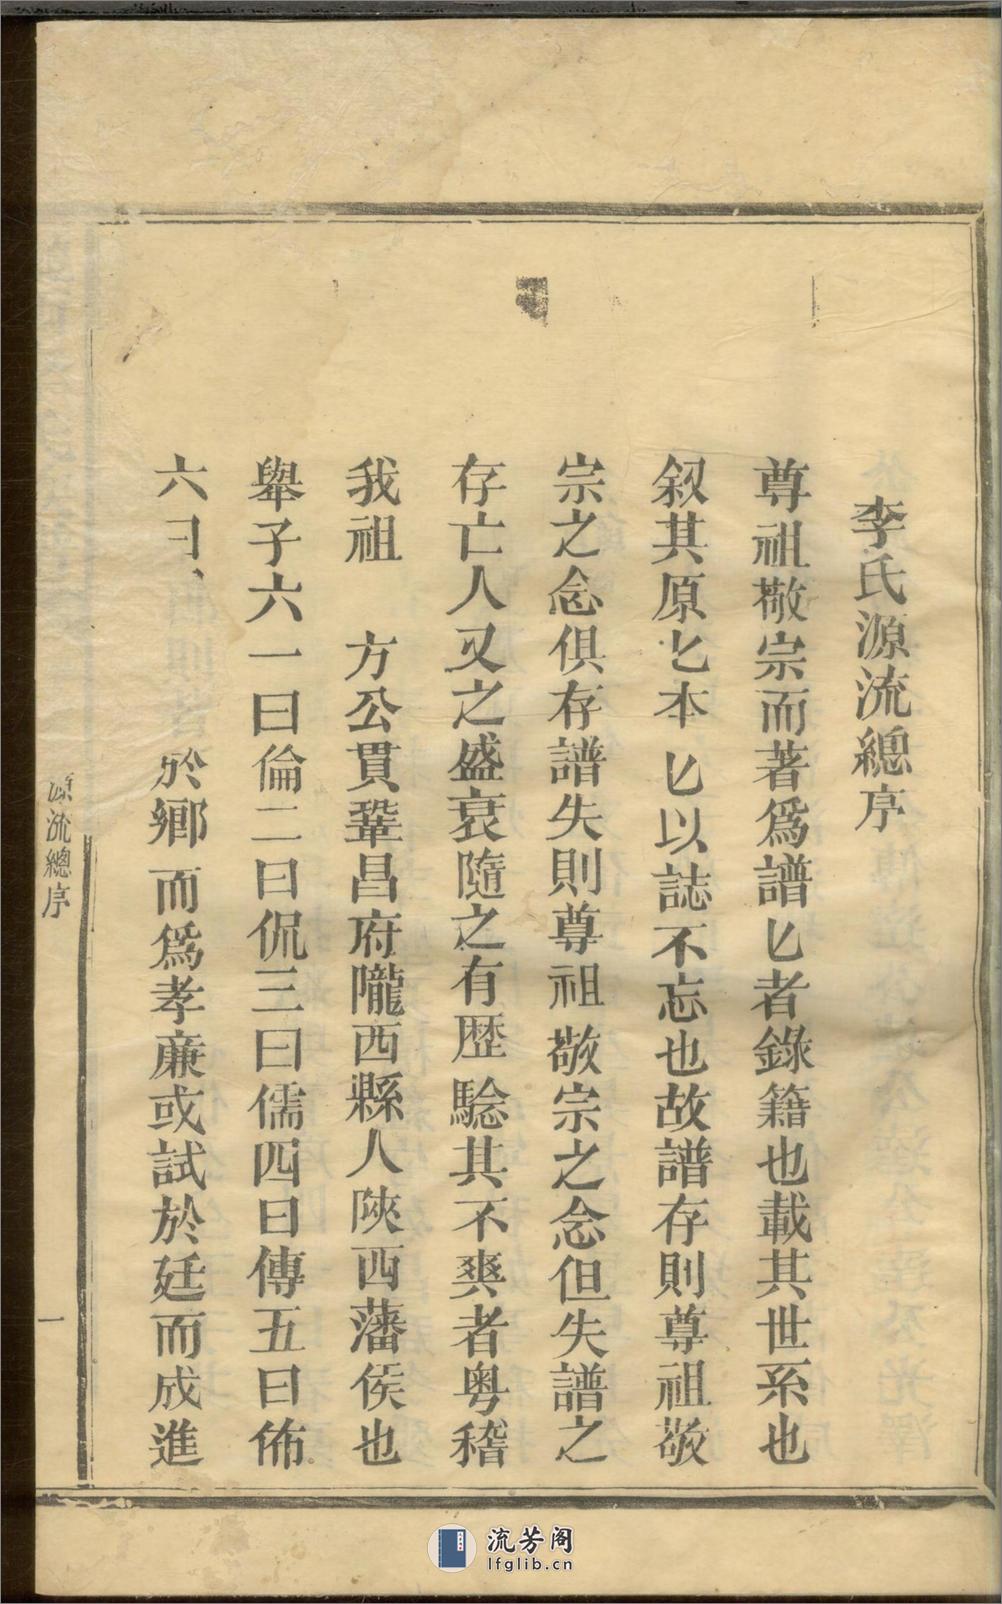 李氏源流總序
尊祖敬宗而著爲譜匕者錄籍也載其世系也
叙其原匕本匕以誌不忘也故譜存則尊祖敬
宗之念俱存譜失則尊祖敬宗之念但失譜之
存亡人又之盛衰隨之有歷騐其不爽者粤稽
我祖 方公貫鞏昌府隴西縣人陝西藩侯也
舉子六一曰倫二曰侃三曰儒四曰傳五曰佈
六曰 於鄉而爲孝廉或試於廷而成進
源流總序
一
流芳阁
lfglib.cn